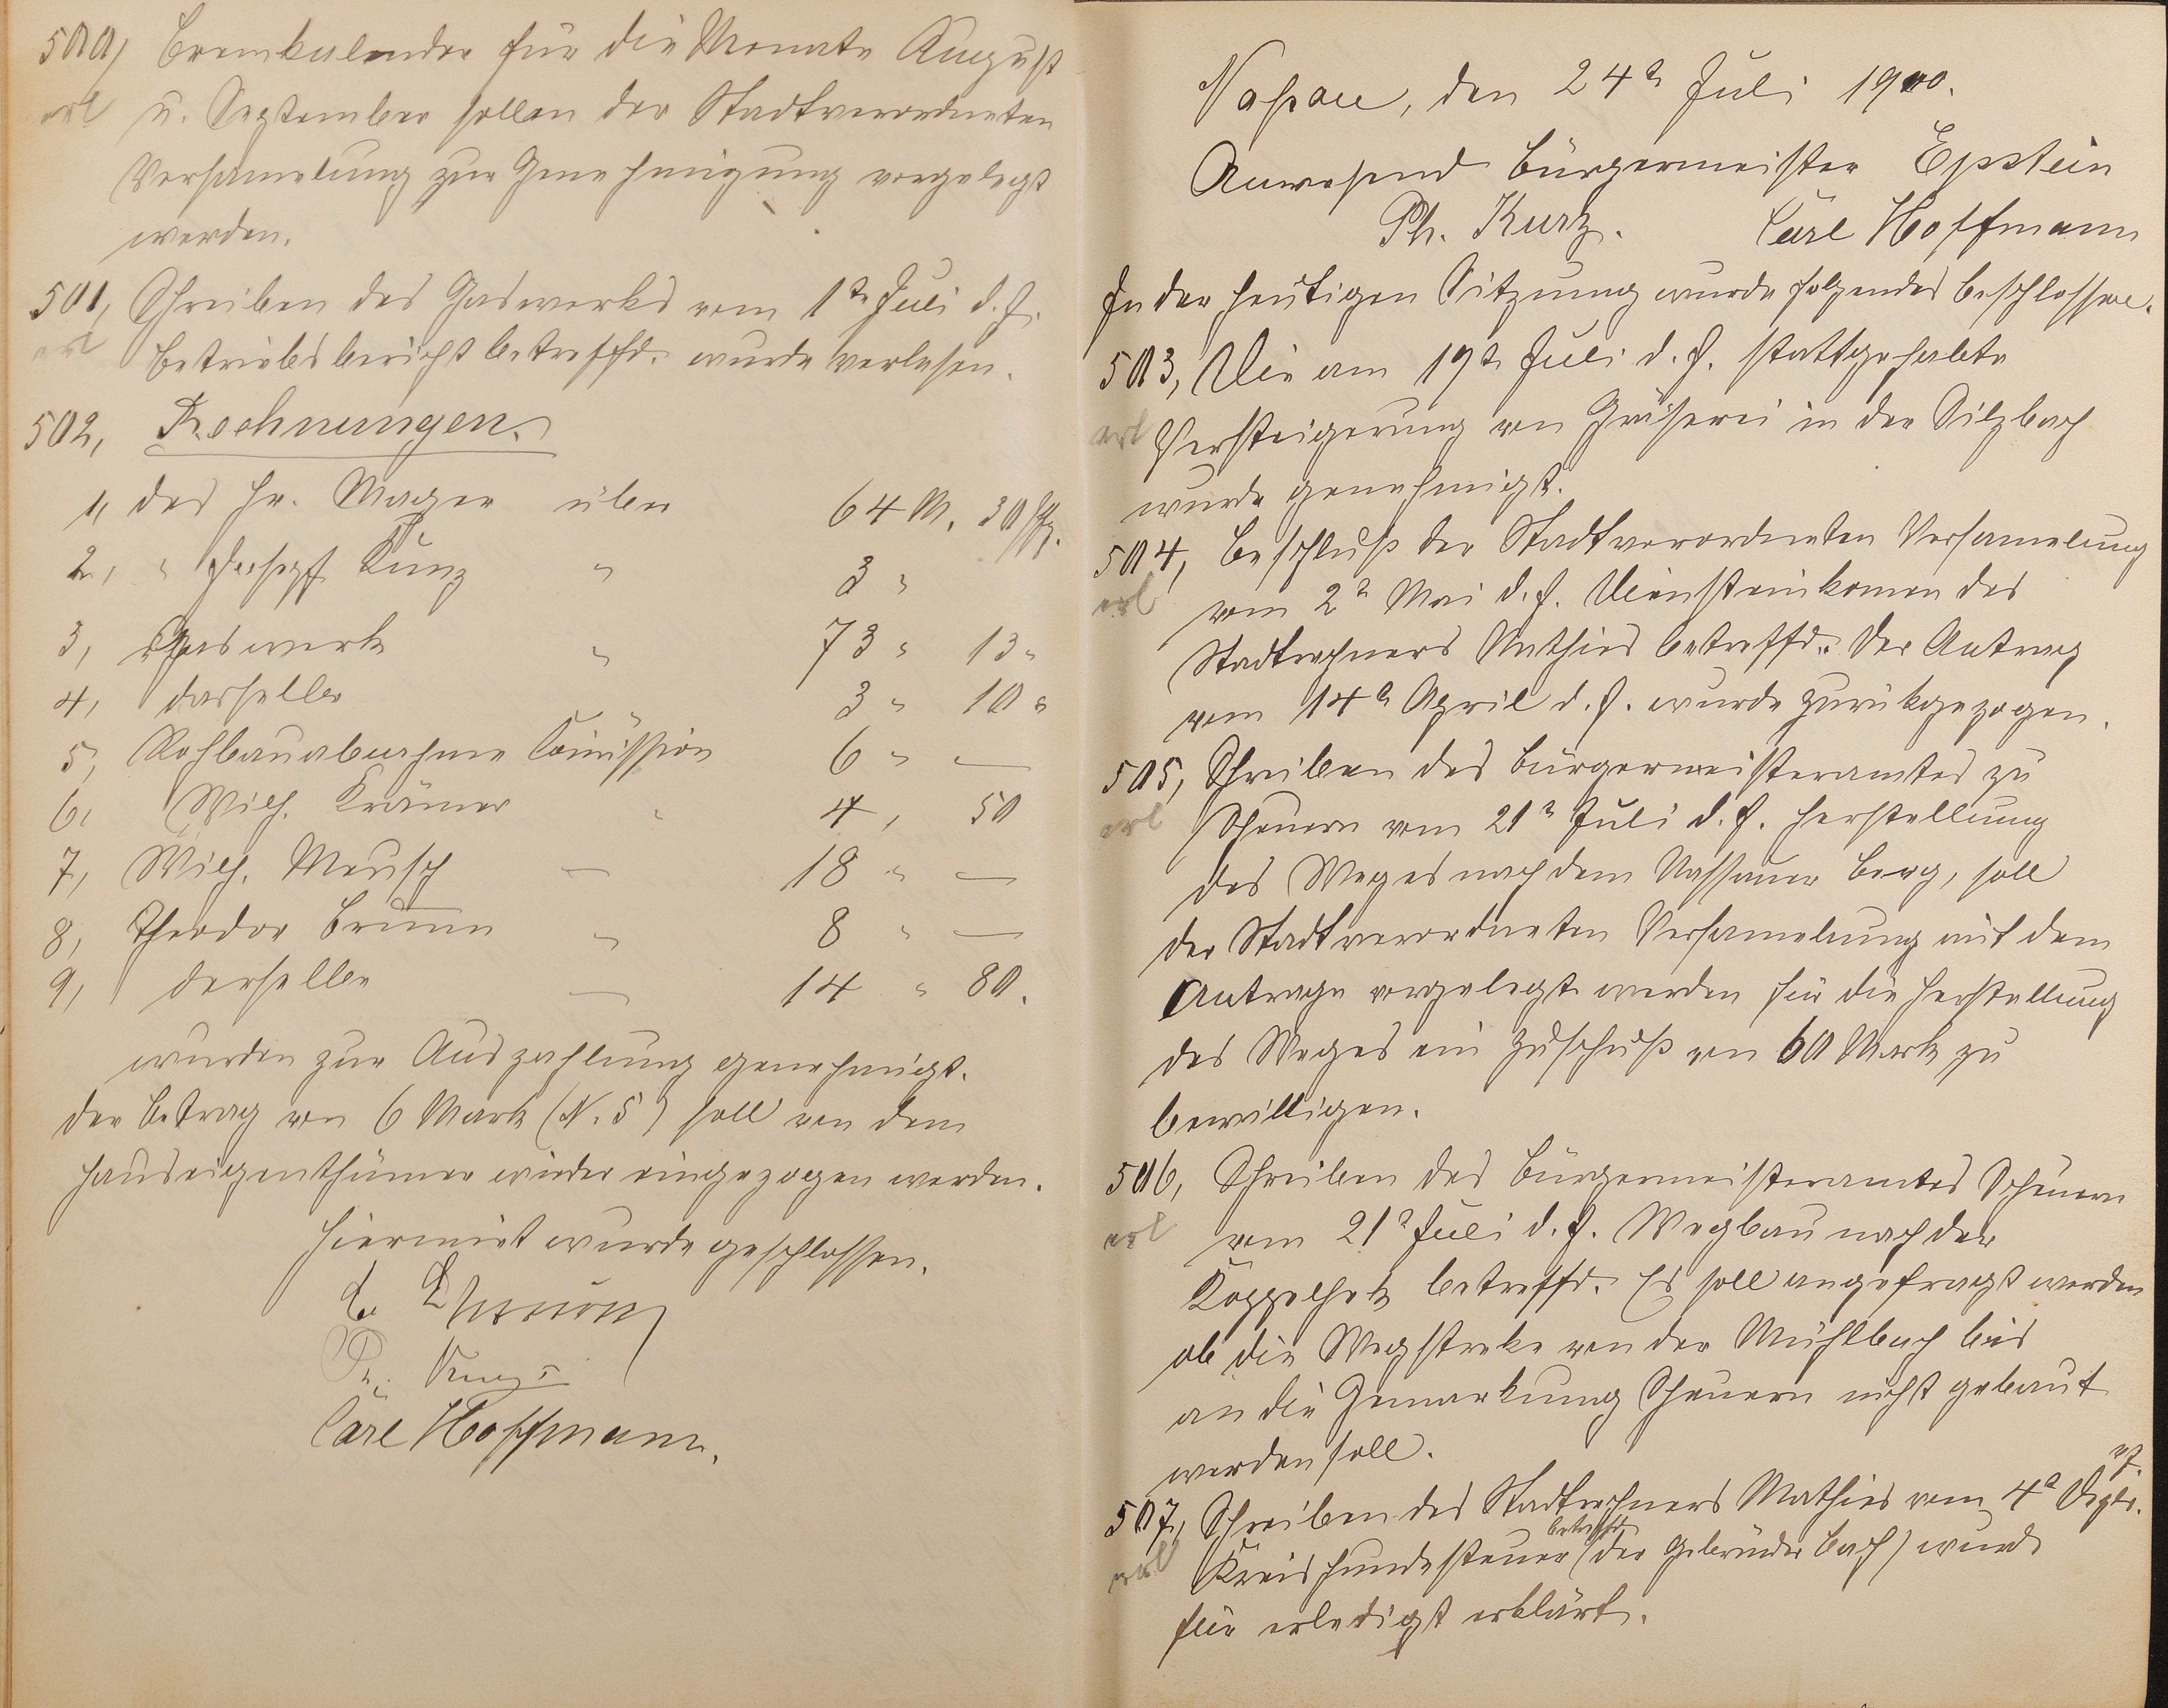 500, Brennkalender für die Monate August
erl u. September sollen der Stadtverordneten
Versamelung zur Genehmigung vorgelegt
werden.
501, Schreiben des Gaswerks vom 1ten Juli d. J.
erl Betriebsbericht betreffd. wurde verlesen.
502, Rechnungen.
1, des Hr. Mager über 64 M. 30 Pfg.
2, " Joseph Kunz " 3 "
3, Gaswerk " 73 " 13 "
4, dasselbe 3 " 10 "
5, Rohbauabnahme Comission 6 " —
6, Wilh. Krämer " 4, 50
7, Wilh. Meusch — 18 " —
8, Theodor Brumm " 8 " —
9, derselbe — 14 " 80.
wurden zur Auszahlung genehmigt.
Der Betrag von 6 Mark (N. 5) soll von dem
Hauseigenthümer wieder eingezogen werden.
Hiermit wurde geschlossen.
Ph. Kurz
Carl Hoffmann.
Nassau, den 24ten Juli 1900.
Anwesend Bürgermeister Epstein
Ph. Kurz. Carl Hoffmann
In der heutigen Sitzung wurde folgendes beschlossen.
503, Die am 19ten Juli d. J. stattgehabte
erl Versteigerung von Gräserei in der Silzbach
wurde genehmigt.
504, Beschluß der Stadtverordneten Versamelung
erl vom 2t Mai d. J. Diensteinkomen des
Stadtrechners Mathies betreffd. Der Antrag
vom 14t April d. J. wurde zurükgezogen.
505, Schreiben des Bürgermeisteramtes zu
erl Scheuern vom 21t Juli d. J. Herstellung
des Weges nach dem Nassauer Berg, soll
der Stadtverordneten Versamelung mit dem
Antrage vorgelegt werden für die Herstellung
des Weges ein Zuschuß von 60 Mark zu
bewilligen.
506, Schreiben des Bürgermeisteramtes Scheuern
erl vom 21t Juli d. J. Wegbau nach der
Koppelhek betreffd. Es soll angefragt werden
ob die Wegstreke von der Mühlbach bis
an die Gemarkung Scheuern nicht gebaut
werden soll.
507, Schreiben des Stadtrechners Mathies vom 4t Dezbr. 99.
betreffd.
erl Kreishundesteuer (der Gebrüder Bach) wurde
für erledigt erklärt.